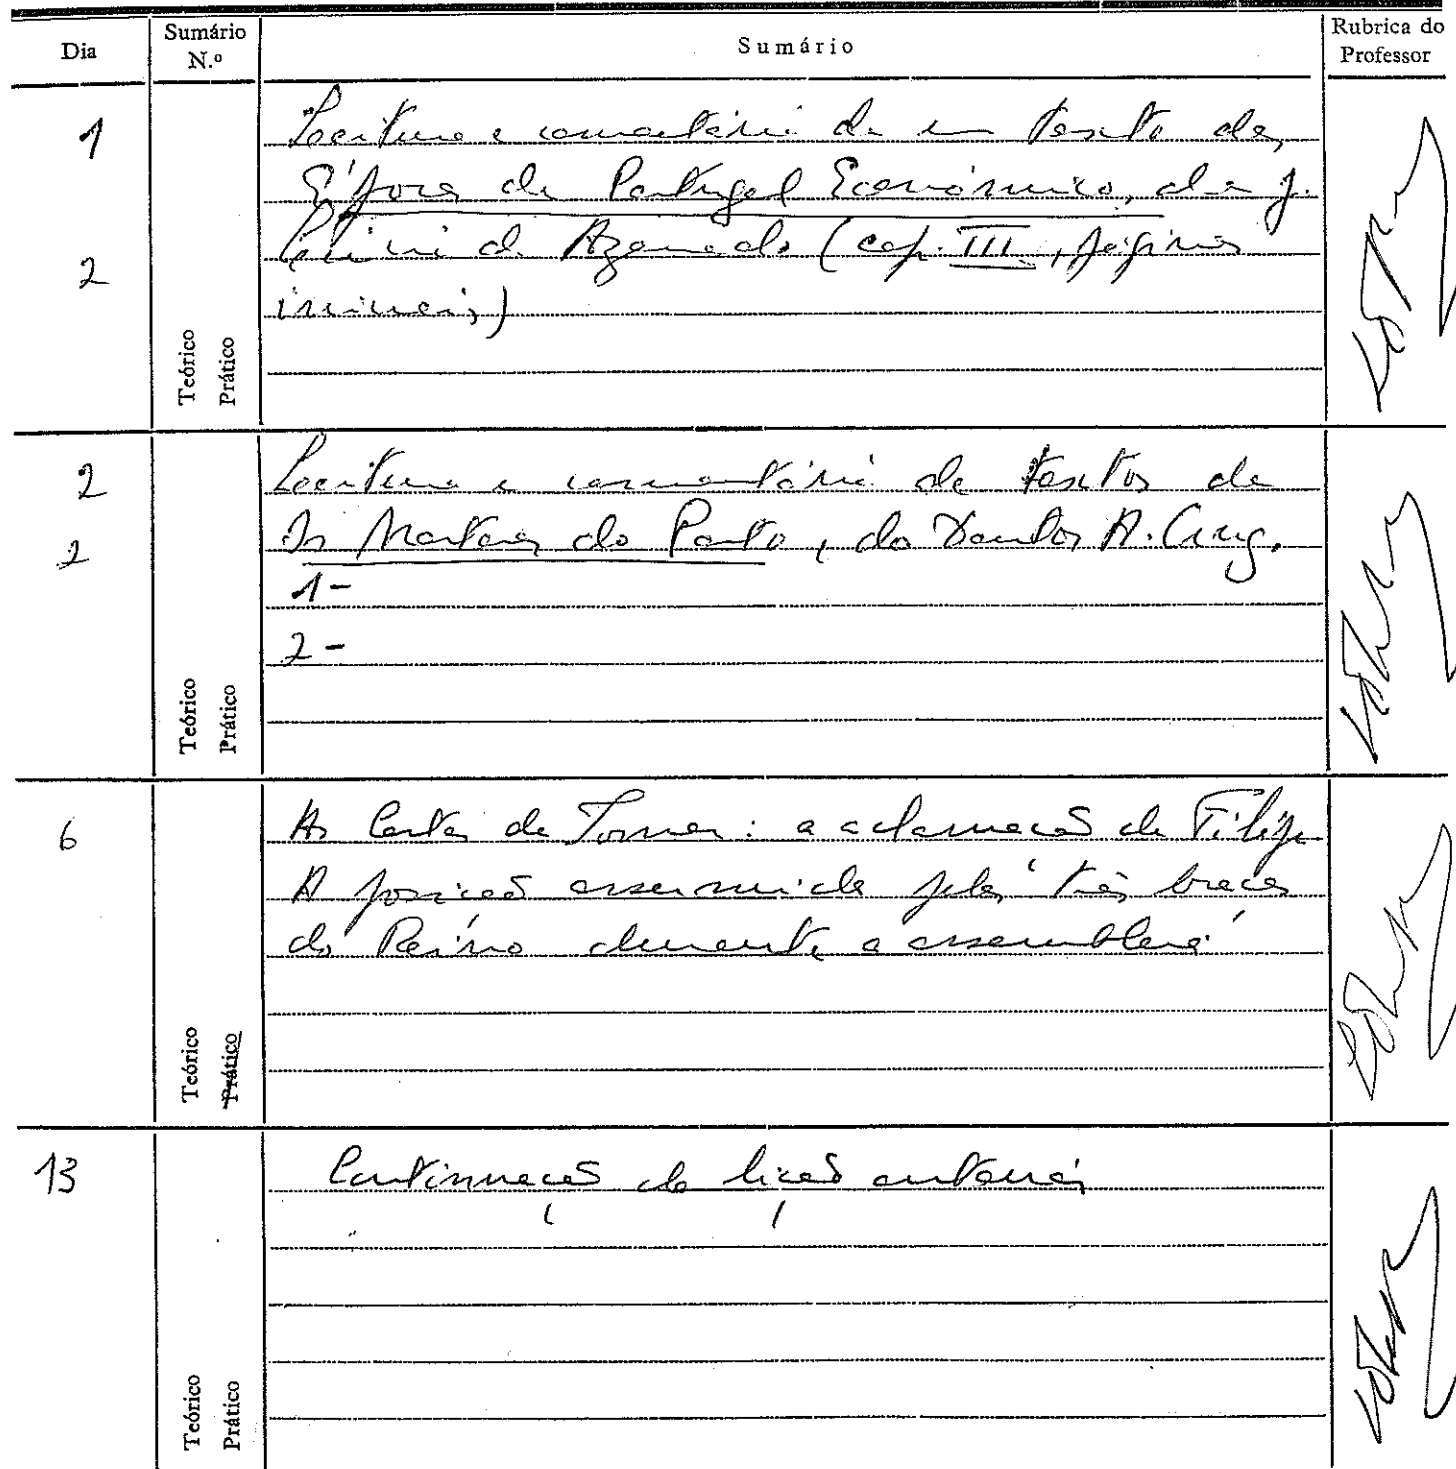 Dia
Sumário N.º
Sumário
Rubrica do Professor
1
2
Leitura e comentário de um texto de
Épocas de Portugal Económico, de J.
Lúcio d. Azevedo (cap. III, páginas
iniciais)
Teórico
Prático
2
2
Leitura e comentário de textos de
Os Mártares do Porto, do Doutor A. Cruz.
1-
2-
Teórico
Prático
6
As Cortes de Tomar: a aclamação de Filipe
A posição assumida pelos três braços
do Reino durante a assembleia
Teórico
Prático
13
Continuação da lição anterior
Teórico
Prático